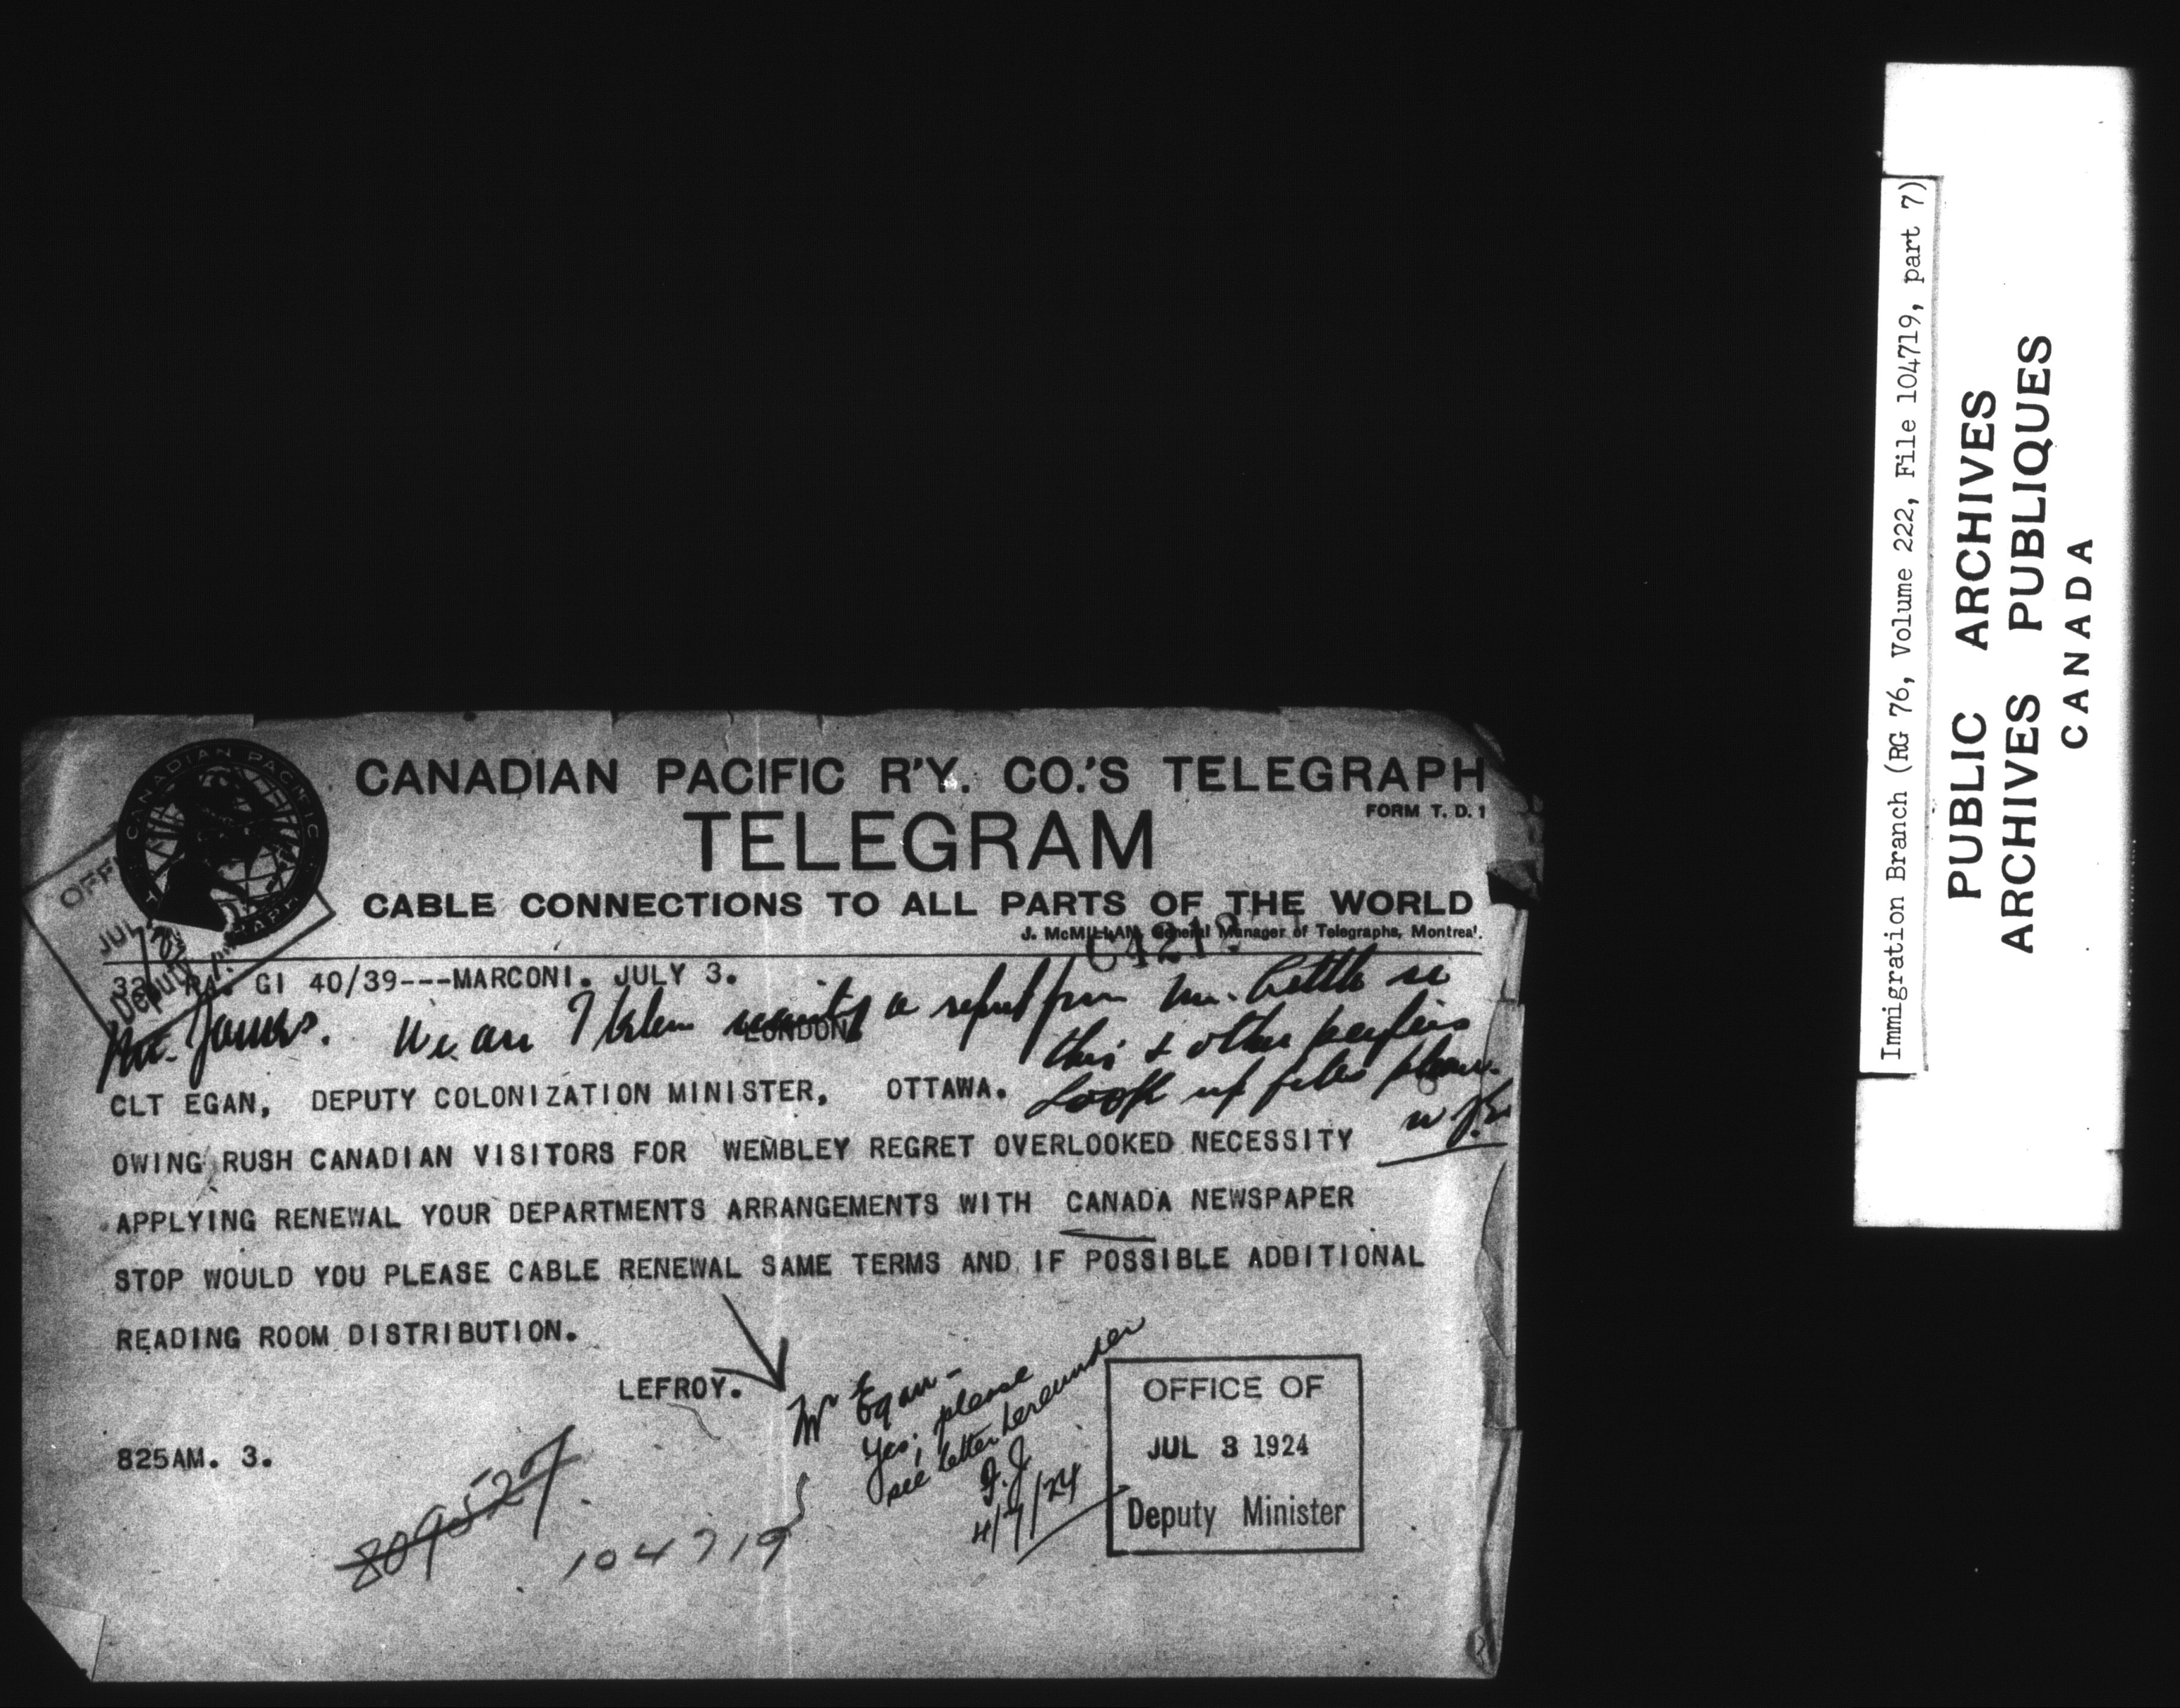 CANADIAN PACIFIC R'Y. CO.'S TELEGRAPH
FORM T. D. 1
TELEGRAM
CABLE CONNECTIONS TO ALL PARTS OF THE WORLD
J. McMILLAN, General Manager of Telegraphs, Montreal.
CANADIAN PACIFIC
JUL
Deputy
GI 40/39---MARCONI. JULY 3.
Mr. James. We are I believe awaiting a report from Mr. Little re
LONDON
this & other papers
Look up files please.
W.J.E.
CLT EGAN, DEPUTY COLONIZATION MINISTER, OTTAWA.
OWING RUSH CANADIAN VISITORS FOR WEMBLEY REGRET OVERLOOKED NECESSITY
APPLYING RENEWAL YOUR DEPARTMENTS ARRANGEMENTS WITH CANADA NEWSPAPER
STOP WOULD YOU PLEASE CABLE RENEWAL SAME TERMS AND IF POSSIBLE ADDITIONAL
READING ROOM DISTRIBUTION.
LEFROY.
825AM. 3.
Mr Egan-
Yes; please
see letter hereunder
F.J.
4/7/24
OFFICE OF
JUL 3 1924
Deputy Minister
809527
104719
Immigration Branch (RG 76, Volume 222, File 104719, part 7)
PUBLIC ARCHIVES
ARCHIVES PUBLIQUES
CANADA